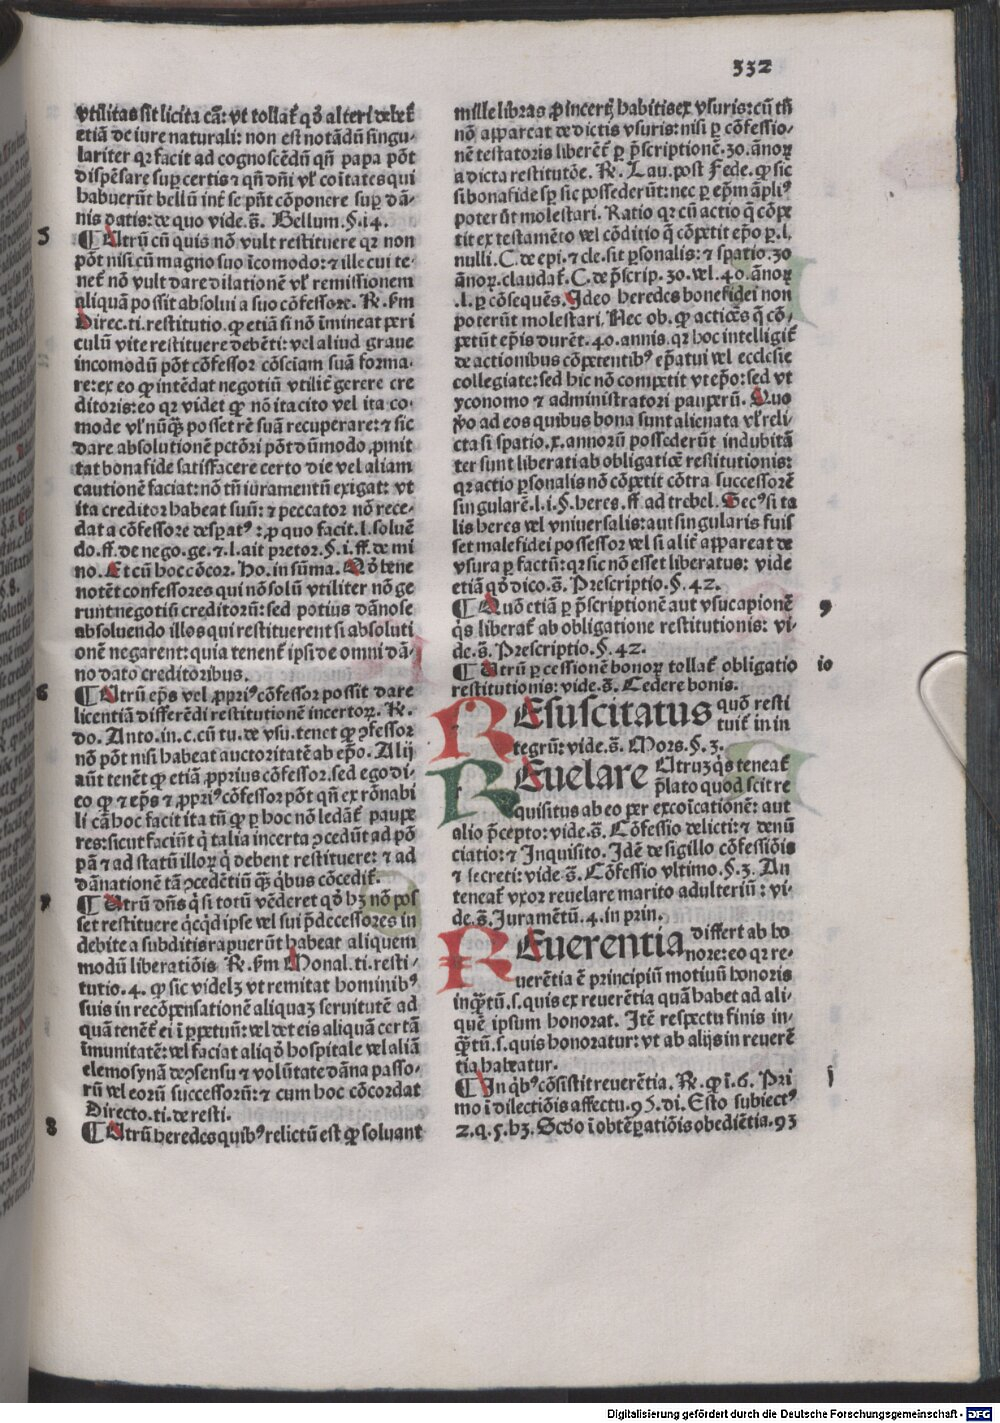 332
vtilitas sit licita cã: vt tollat̃ qð alteri debet̃
etiã de iure naturali: non est notãdũ singu-
lariter qꝛ facit ad cognoscẽdũ qñ papa põt
dispẽsare sup certis ⁊ qñ dñi vl̃ cõitates qui
habuerũt bellũ int̃ se pñt cõponere sup dã-
nis datis: de quo vide.s̃. Bellum.§.14.
5
¶ Utrũ cũ quis nõ vult restituere qꝛ non
põt nisi cũ magno suo ĩcomodo: ⁊ ille cui te-
net̃ nõ vult dare dilationẽ vl̃ remissionem
aliquã possit absolui a suo cõfessore. R̃. s̃m
Direc.ti.restitutio. ꝙ etiã si nõ ĩmineat peri
culũ vite restituere debẽti: vel aliud graue
incomodũ põt cõfessor cõsciam suã forma-
re: ex eo ꝙ intẽdat negotiũ vtilit̃ gerere cre
ditoris: eo qꝛ videt ꝙ nõ ita cito vel ita co-
mode vl̃ nũq̃ posset rẽ suã recuperare: ⁊ sic
dare absolutionẽ pctõri põt dũmodo ꝓmit
tat bona fide satisfacere certo die vel aliam
cautionẽ faciat: nõ tñ iuramentũ exigat: vt
ita creditor habeat suũ: ⁊ peccator nõ rece-
dat a cõfessore desperatꝰ: ꝓ quo facit.l. soluẽ
do.ff. de nego.ge.⁊.l. ait pretor.§.i.ff. de mi
no. Et cũ hoc cõcor. Ho. in sũma. Qð bene
notẽt confessores qui nõ solũ vtiliter nõ ge
runt negotiũ creditorũ: sed potius dãnose
absoluendo illos qui restituerent si absoluti
onẽ negarent: quia tenent̃ ipsi de omni dã-
no dato creditoribus.
6
¶ Utrũ ep̃s vel ꝓpriꝰ cõfessor possit dare
licentiã differẽdi restitutionẽ incertoꝝ. R̃.
do. Anto.in.c. cũ tu. de vsu. tenet ꝙ ꝯfessor
nõ põt nisi habeat auctoritatẽ ab ep̃o. Alij
aũt tenẽt ꝙ etiã ꝓprius cõfessor. sed ego di-
co ꝙ ⁊ ep̃s ⁊ ꝓpriꝰ cõfessor põt qñ ex rõnabi
li cã hoc facit ita tñ ꝙ p hoc nõ ledãt̃ paupe
res: sicut faciũt q̃ talia incerta ꝯcedũt ad põ
pã ⁊ ad statũ illoꝝ q̃ debent restituere: ⁊ ad
dãnationẽ tã ꝯcedẽtiũ q̃ꝫ q̃bus cõcedit̃.
7
¶ Utrũ dñs q̃ si totũ vẽderet qð hꝫ nõ pos
set restituere q̃cq̃d ipse vel sui p̃decessores in
debite a subditis rapuerũt habeat aliquem
modũ liberatiõis. R̃. s̃m Monal.ti. resti-
tutio.4. ꝙ sic videlꝫ vt remitat hominibꝰ
suis in recõpensationẽ aliquaꝫ seruitutẽ ad
quã tenẽt̃ ei ĩ p̱petuũ: vel det eis aliquã certã
ĩmunitatẽ: vel faciat aliqð hospitale vel aliã
elemosynã de ꝯsensu ⁊ volũtate dãna passo-
rũ vel eorũ successorũ: ⁊ cum hoc cõcordat
Directo.ti. de resti.
8
¶ Utrũ heredes quibꝰ relictũ est ꝙ soluant
mille libras ꝓ incertꝭ habitis ex vsuris: cũ tñ
nõ appareat de dictis vsuris: nisi p̱ cõfessio-
nẽ testatoris liberẽt̃ p̱ p̃scriptionẽ.30. ãnoꝝ
a dicta restitutõe. R̃. Lau. post Fede. ꝙ sic
si bona fide sp̱ sic possederũt: nec p̱ ep̃m ãpliꝰ
poterũt molestari. Ratio qꝛ cũ actio q̃ cõpe
tit ex testamẽto vel cõditio q̃ cõpetit ep̃o p̱.l.
nulli. C. de epi. ⁊ cle. sit p̱sonalis: ⁊ spatio.30
ãnoꝝ. claudat̃. C. de p̃scrip.30. vel.40. ãnoꝝ
.l. p̱ cõsequẽs. Ideo heredes bone fidei non
poterũt molestari. Nec ob. ꝙ actiões q̃ cõ-
petũt ep̃is durẽt.40. annis. qꝛ hoc intelligit̃
de actionibus cõpetentibꝰ ep̃atui vel ecclesie
collegiate: sed hic nõ competit vt ep̃o: sed vt
yconomo ⁊ administratori pauperũ. Quo
ꝟo ad eos quibus bona sunt alienata vl̃ reli-
cta si spatio.x. annorũ possederũt indubitã
ter sunt liberati ab obligatiõe restitutionis:
qꝛ actio p̱sonalis nõ cõpetit cõtra successorẽ
singularẽ.l.i.§. heres. ff. ad trebel. Secꝰ si ta
lis heres vel vniuersalis: aut singularis fuis
set male fidei possessor vel si alit̃ appareat de
vsura p̱ factũ: qꝛ sic nõ esset liberatus: vide
etiã qð dico.s̃. Prescriptio.§.42.
9
¶ Quõ etiã p̱ p̃scriptionẽ aut vsucapionẽ
q̃s liberat̃ ab obligatione restitutionis: vi-
de.s̃. Prescriptio.§.42.
10
¶ Utrũ p̱ cessionẽ bonoꝝ tollat̃ obligatio
restitutionis: vide.s̃. Cedere bonis.
REsuscitatus quõ resti
tuit̃ in in
tegrũ: vide.s̃. Mors.§.3.
REuelare Utruꝫ q̃s teneat̃
p̃lato quod scit re
quisitus ab eo per excoĩcationẽ: aut
alio p̃cepto: vide.s̃. Cõfessio delicti: ⁊ denũ
ciatio: ⁊ Inquisito. Idẽ de sigillo cõfessiõis
⁊ secreti: vide.s̃. Cõfessio vltimo.§.3. An
teneat̃ vxor reuelare marito adulteriũ: vi-
de.s̃. Juramẽtũ.4. in prin.
REuerentia differt ab ho
nore: eo qꝛ re-
uerẽtia ẽ principiũ motiuũ honoris
inq̃tũ.s. quis ex reuerẽtia quã habet ad ali-
quẽ ipsum honorat. Itẽ respectu finis in-
q̃tũ.s. quis honoratur: vt ab alijs in reuerẽ
tia habeatur.
i
¶ In q̃bꝰ cõsistit reuerẽtia. R̃. ꝙ ĩ.6. Pri
mo ĩ dilectiõis affectu.95. di. Esto subiectꝰ
2.q.5. hꝫ. Scðo ĩ obtẽperatiõis obediẽtia.93
Digitalisierung gefördert durch die Deutsche Forschungsgemeinschaft - DFG